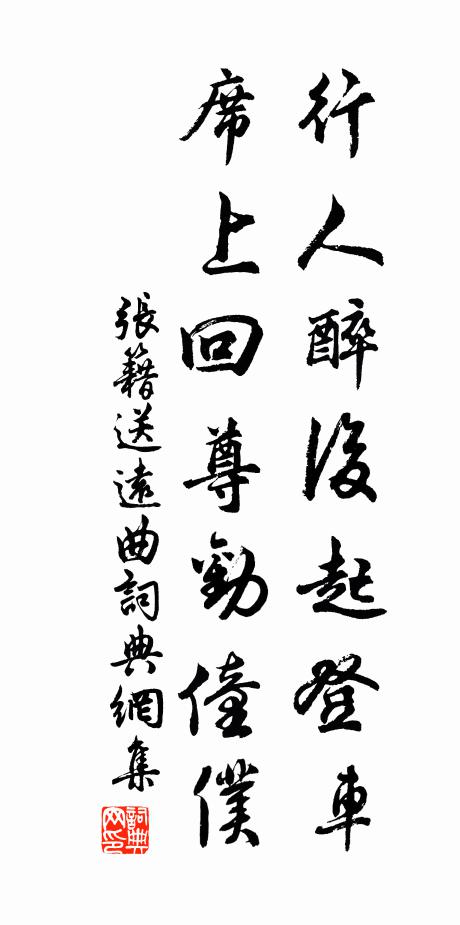 行人醉後起登車
席上回尊勸僮僕
張籍送遠曲詞典網集
詞典网印